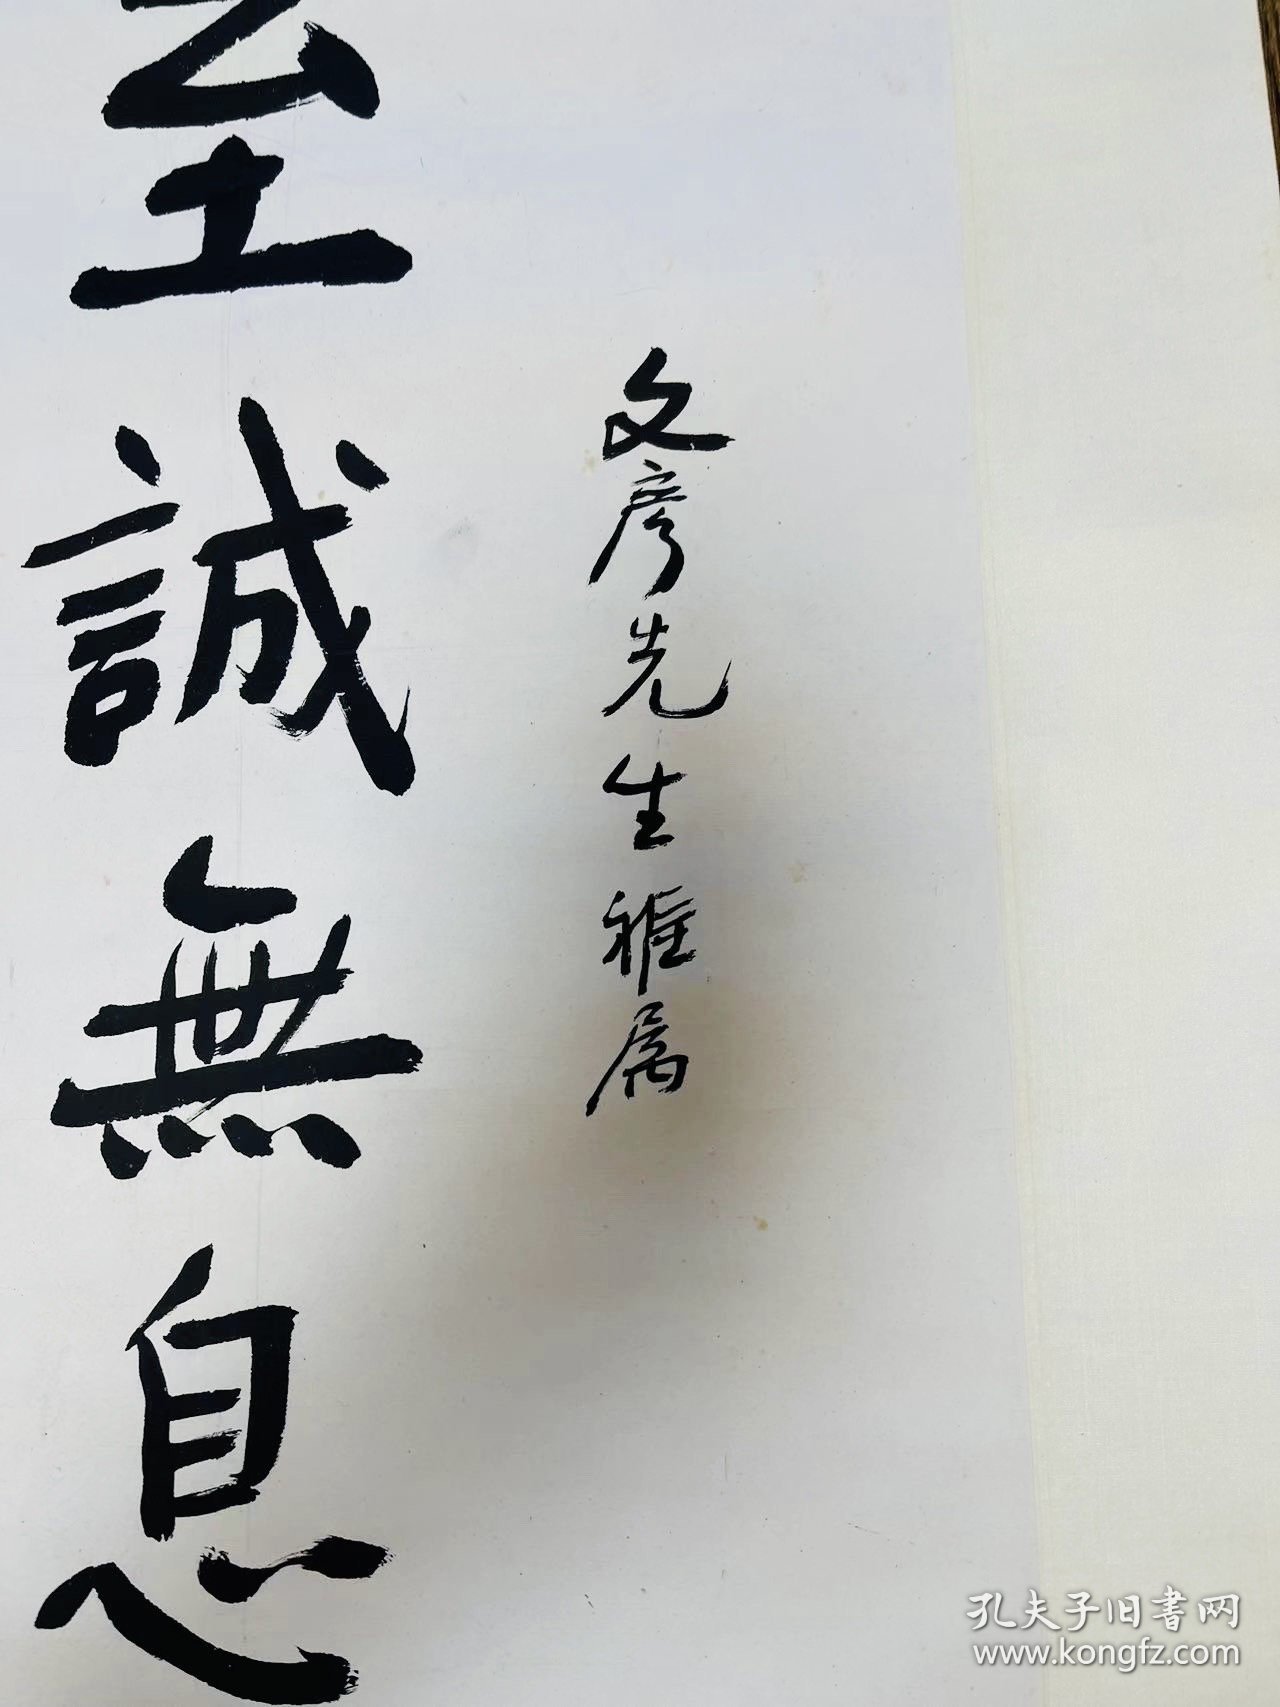 文彦先生雅属
至誠無息
孔夫子旧書网
www.kongfz.com